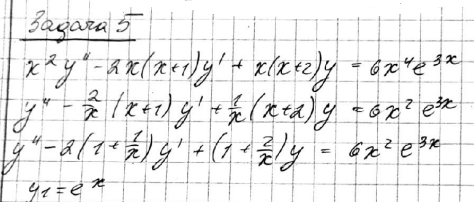 Задача 5
x² y'' - 2x(x+1) y' + x(x+2) y = 6x⁴ e³ˣ
y'' - 2/x (x+1) y' + 1/x (x+2) y = 6x² e³ˣ
y'' - 2(1 + 1/x) y' + (1 + 2/x) y = 6x² e³ˣ
y₁ = eˣ